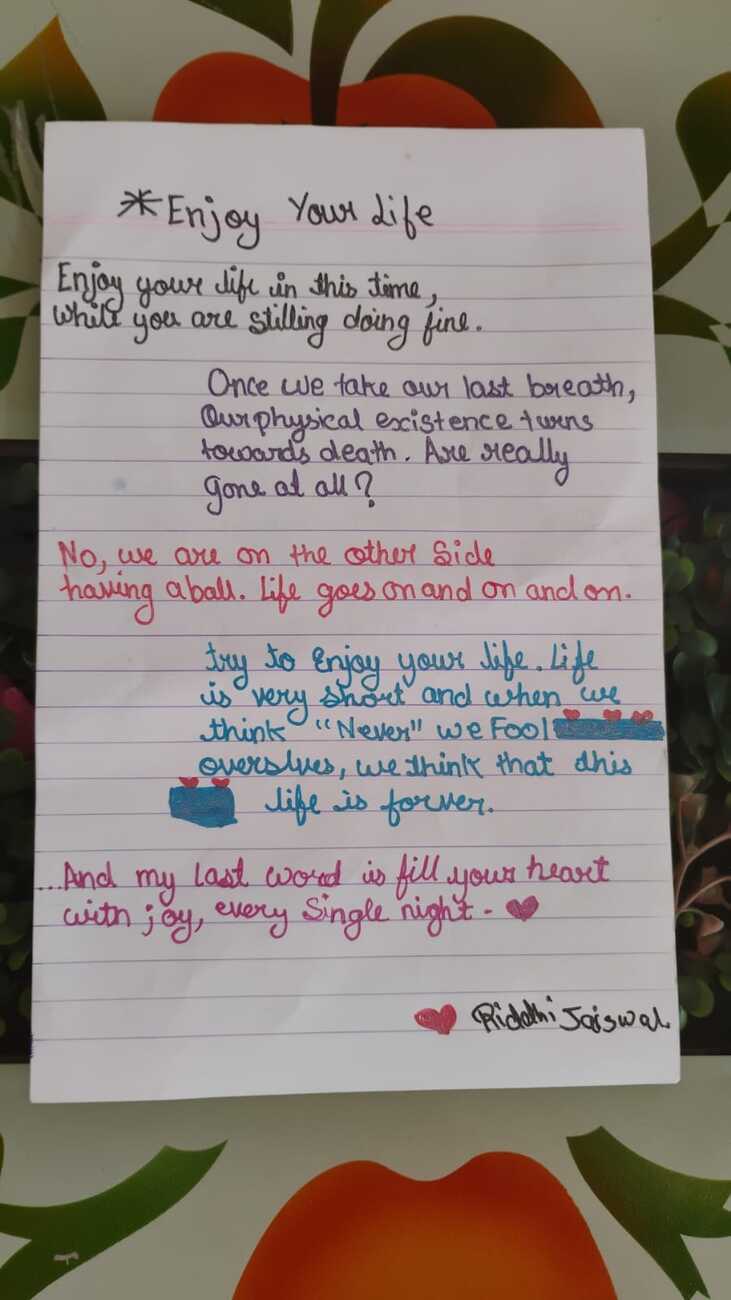 *Enjoy Your Life
Enjoy your life in this time,
While you are stilling doing fine.
Once we take our last breath,
Our physical existence turns
towards death. Are really
gone at all?
No, we are on the other Side
having a ball. Life goes on and on and on.
try to Enjoy your life. Life
is very short and when we
think "Never" we Fool
overslves, we think that this
life is forver.
...And my last word is fill your heart
with joy, every Single night -
Riddhi Jaiswal